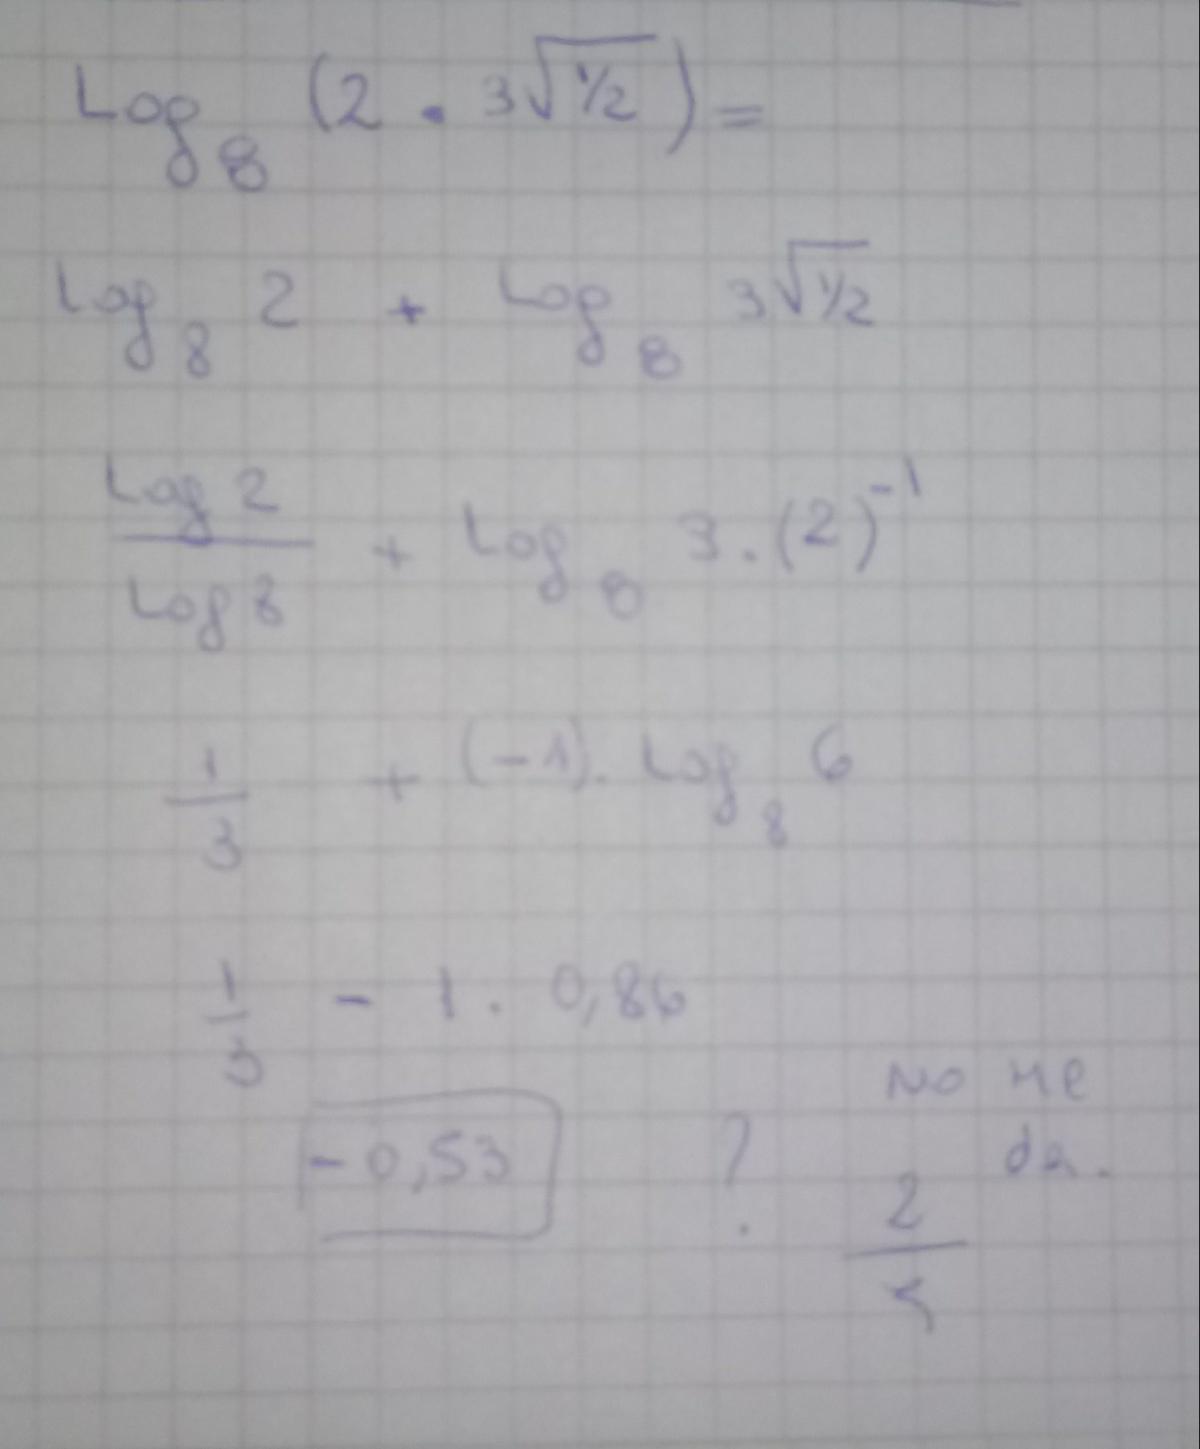 Log₈ (2 · 3√1/2) =
Log₈ 2 + Log₈ 3√1/2
Log 2 / Log 8 + Log₈ 3 · (2)⁻¹
1/3 + (-1) · Log₈ 6
1/3 - 1 · 0,86
-0,53 ?
NO ME
da.
2/5